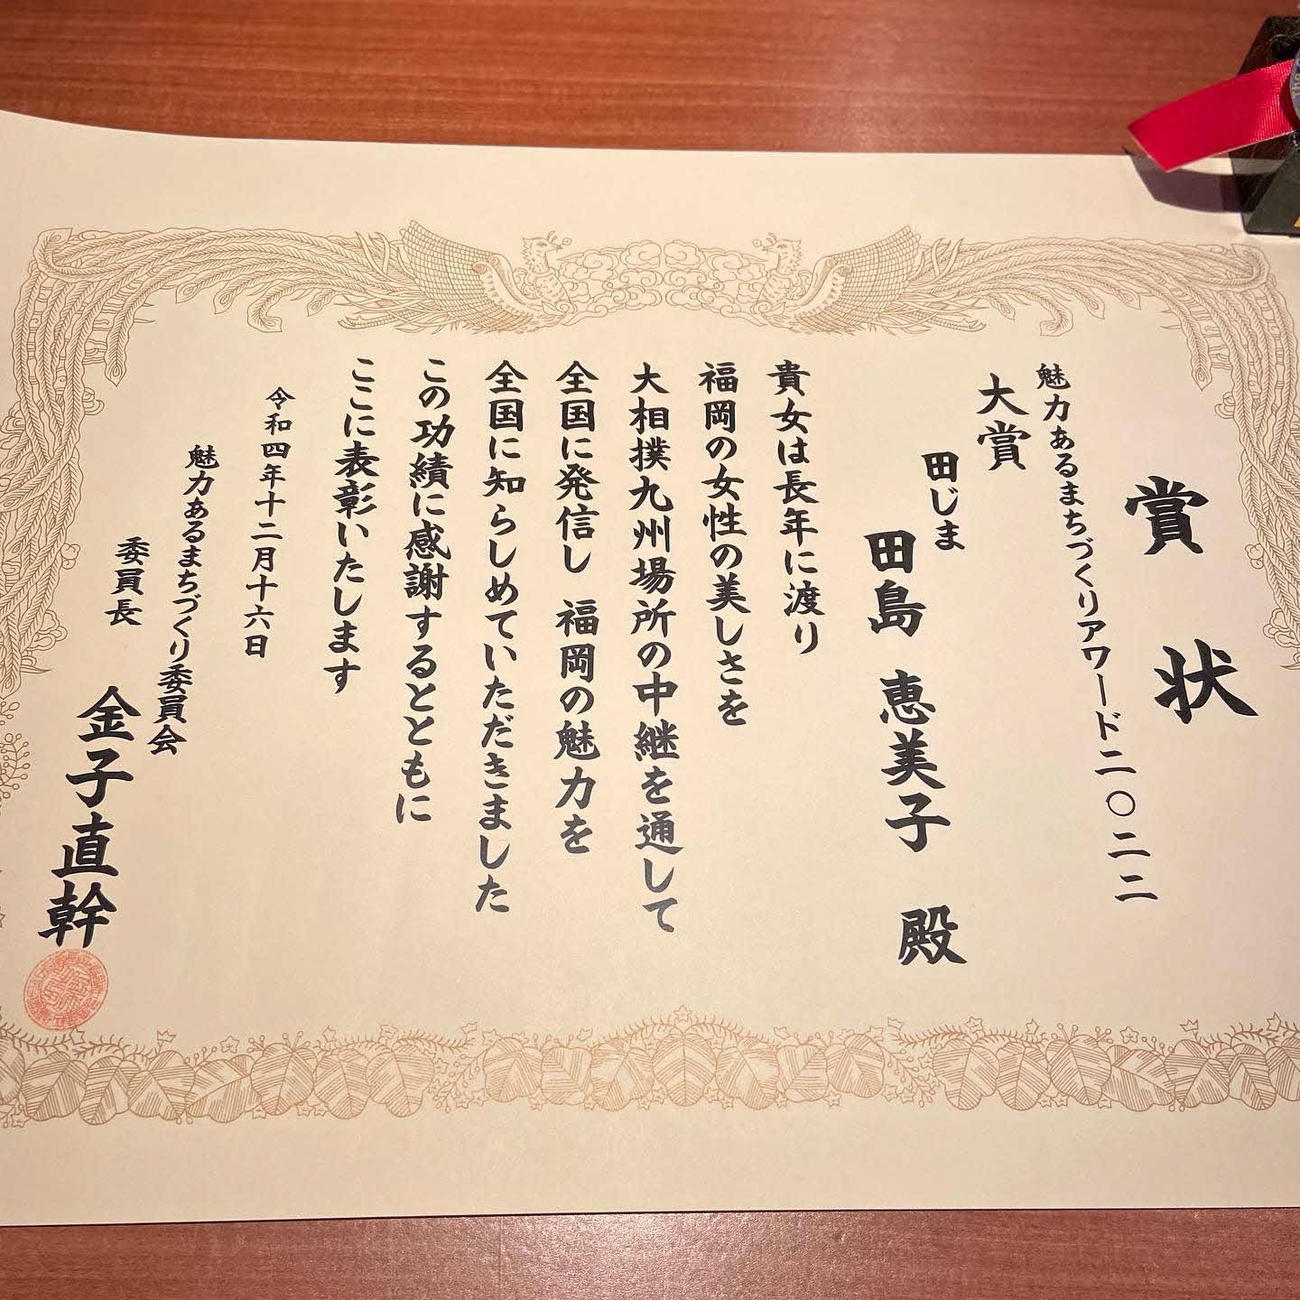 賞状
魅力あるまちづくりアワード二〇二二
大賞
田じま
田島 恵美子 殿
貴女は長年に渡り
福岡の女性の美しさを
大相撲九州場所の中継を通して
全国に発信し 福岡の魅力を
全国に知らしめていただきました
この功績に感謝するとともに
ここに表彰いたします
令和四年十二月十六日
魅力あるまちづくり委員会
委員長 金子直幹